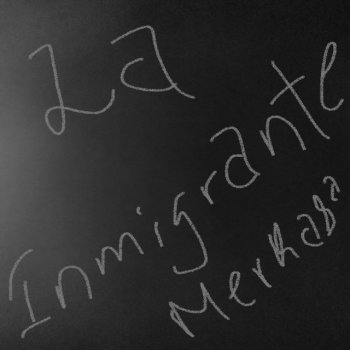 La
Inmigrante
Merkaba